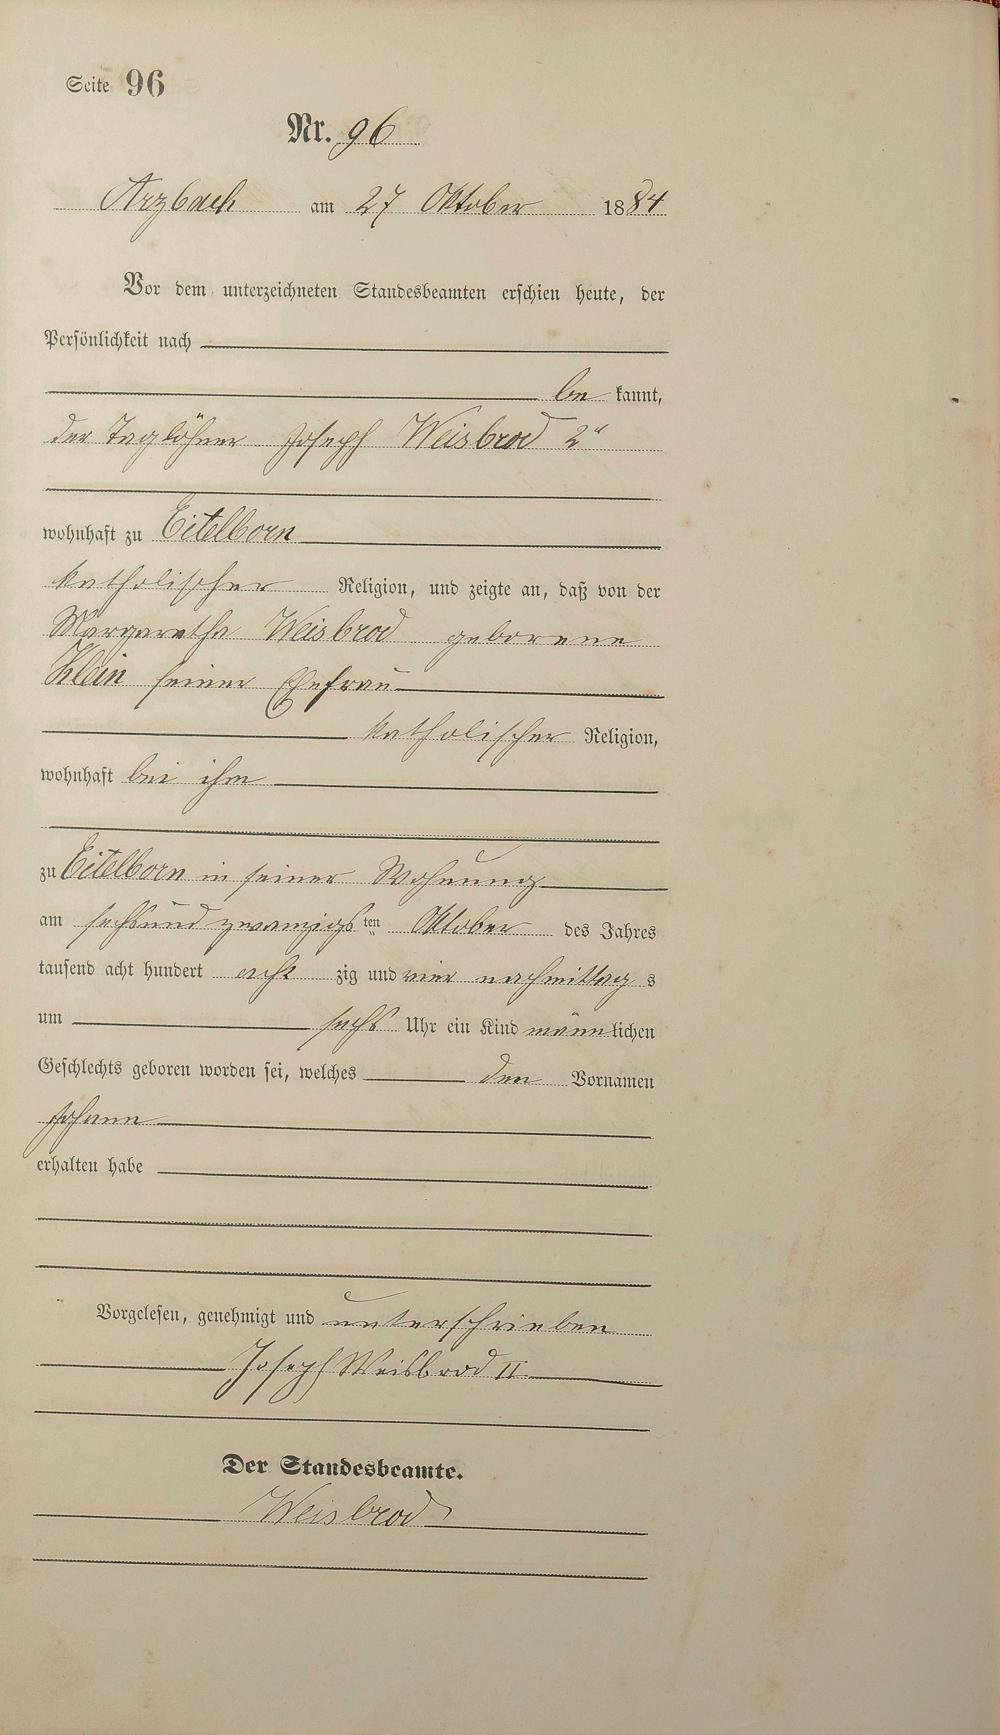 Seite 96
Nr. 96
Arzbach am 27 Oktober 1884
Vor dem unterzeichneten Standesbeamten erschien heute, der
Persönlichkeit nach
be kannt,
der Taglöhner Joseph Weisbrod 2r
wohnhaft zu Eitelborn
katholischer Religion, und zeigte an, daß von der
Margaretha Weisbrod geborene
Klein seiner Ehefrau
katholischer Religion,
wohnhaft bei ihm
zu Eitelborn in seiner Wohnung
am sechsund zwanzigsten Oktober des Jahres
tausend acht hundert acht zig und vier nachmittag s
um sechs Uhr ein Kind männlichen
Geschlechts geboren worden sei, welches den Vornamen
Johann
erhalten habe
Vorgelesen, genehmigt und unterschrieben
Joseph Weisbrod II
Der Standesbeamte.
Weisbrod